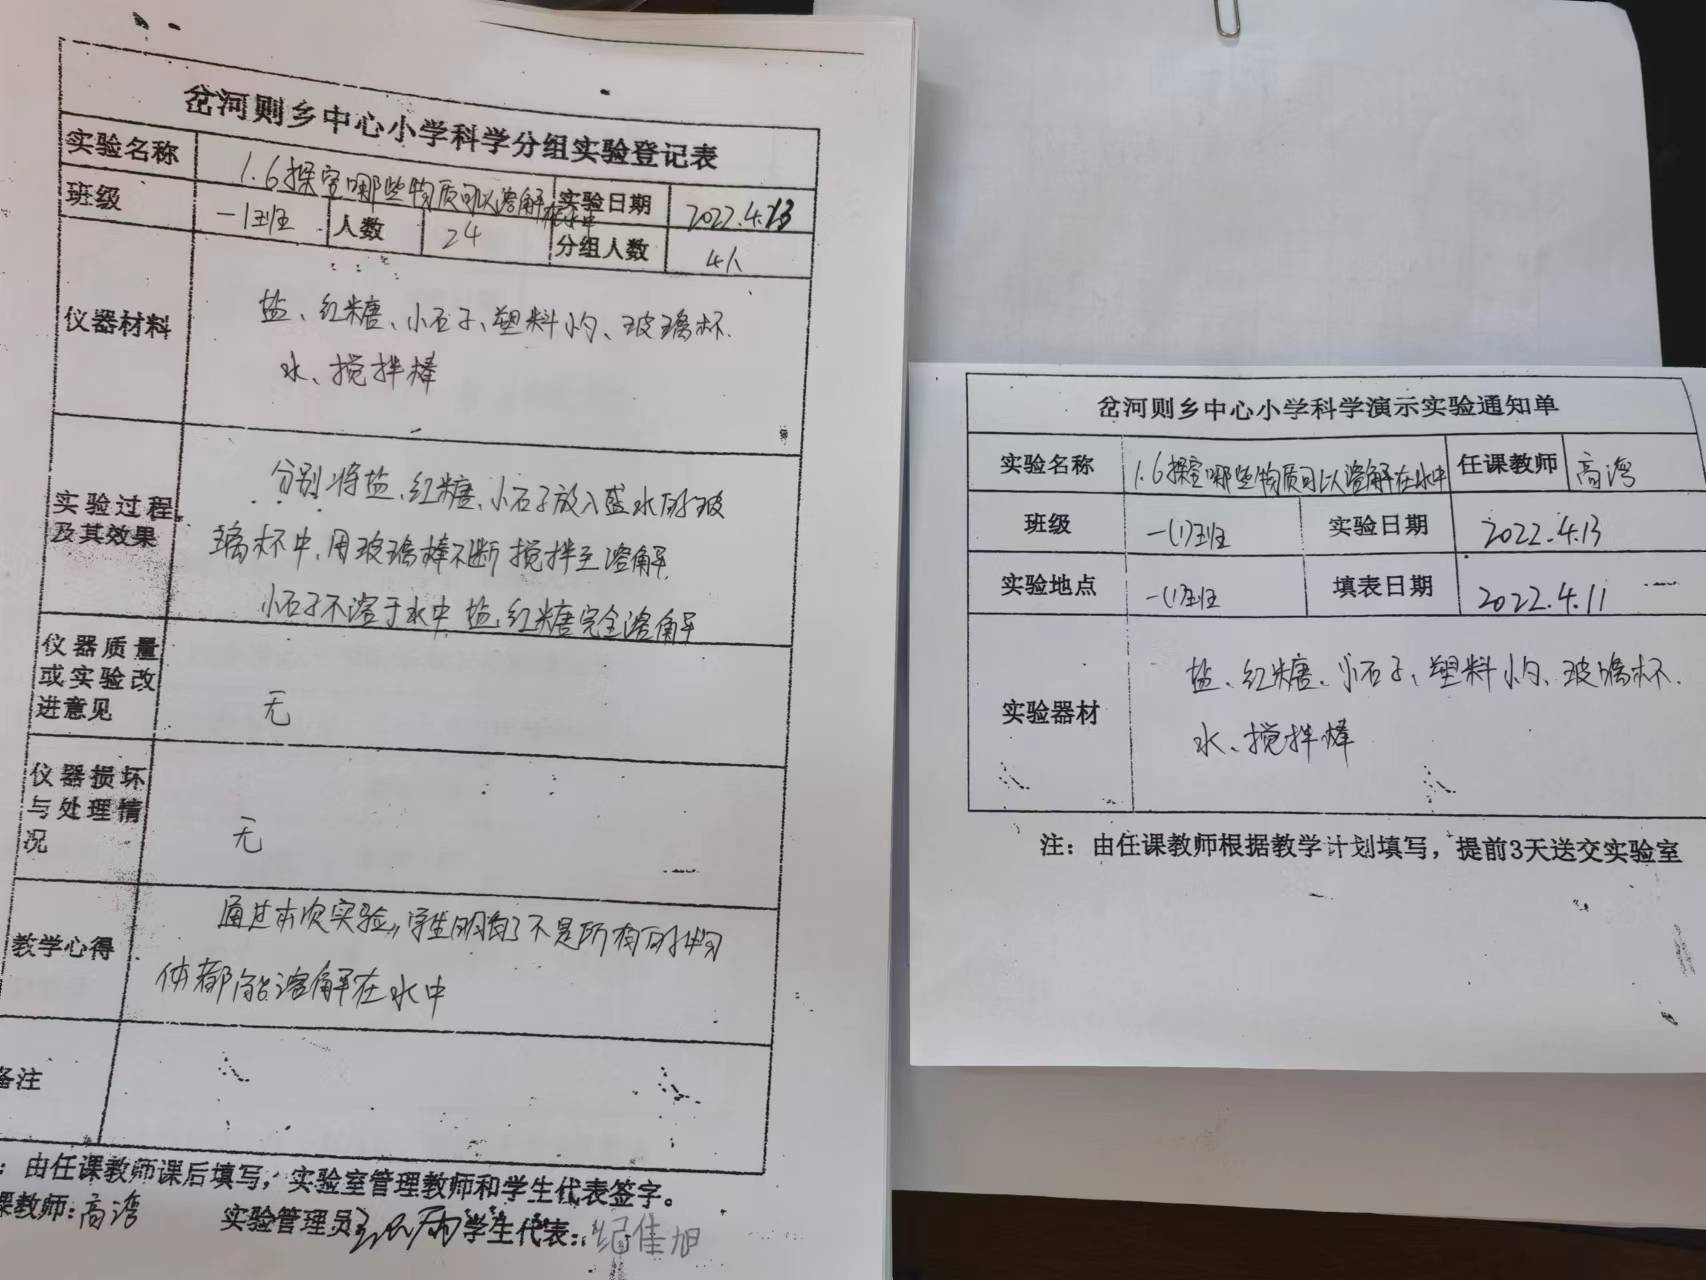 岔河则乡中心小学科学分组实验登记表
实验名称 1.6探究哪些物质可以溶解在水中 实验日期 2022.4.13
班级 一1班 人数 24 分组人数 4人
仪器材料 盐、红糖、小石子、塑料小勺、玻璃杯
水、搅拌棒
实验过程及其效果
分别将盐、红糖、小石子放入盛水的玻
璃杯中,用玻璃棒不断搅拌至溶解
小石子不溶于水中 盐,红糖完全溶解
仪器质量
或实验改
进意见
无
仪器损坏
与处理情
况
无
教学心得
通过本次实验,学生明白了不是所有的物
体都能溶解在水中
备注
:由任课教师课后填写,实验室管理教师和学生代表签字。
课教师:高湾 实验管理员 学生代表:纪佳旭
岔河则乡中心小学科学演示实验通知单
实验名称 1.6探究哪些物质可以溶解在水中 任课教师 高湾
班级 一(1)班 实验日期 2022.4.13
实验地点 一(1)班 填表日期 2022.4.11
实验器材 盐、红糖、小石子、塑料小勺、玻璃杯
水、搅拌棒
注:由任课教师根据教学计划填写,提前3天送交实验室